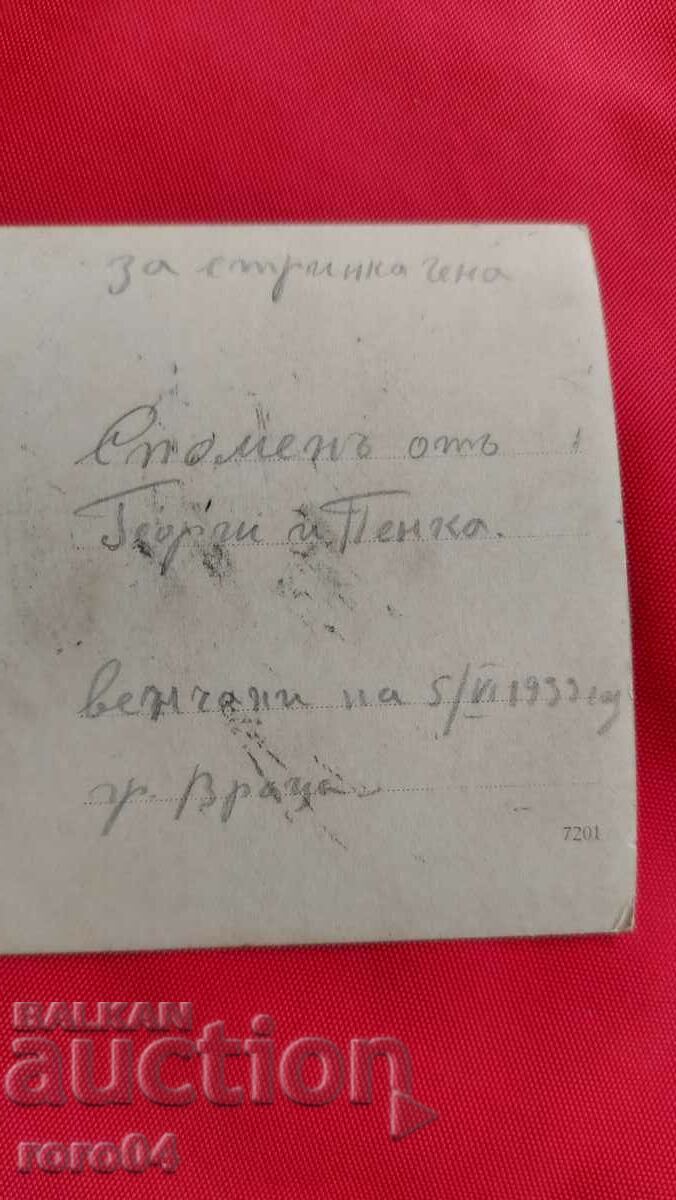 за стринка Гена
Споменъ отъ
Георги и Пенка.
венчани на 5/VI 1933 год
гр. Враца
7201
BALKAN
auction
roro04